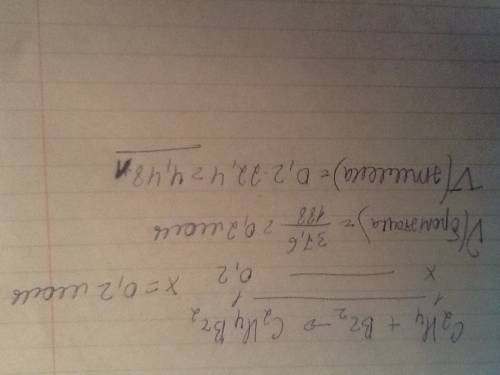 C₂H₄ + Br₂ → C₂H₄Br₂
1 ——— 1
x ——— 0,2 x = 0,2 моль
ν( ) = 37,6/188 = 0,2 моль
V(этилена) = 0,2·22,4 = 4,48 л